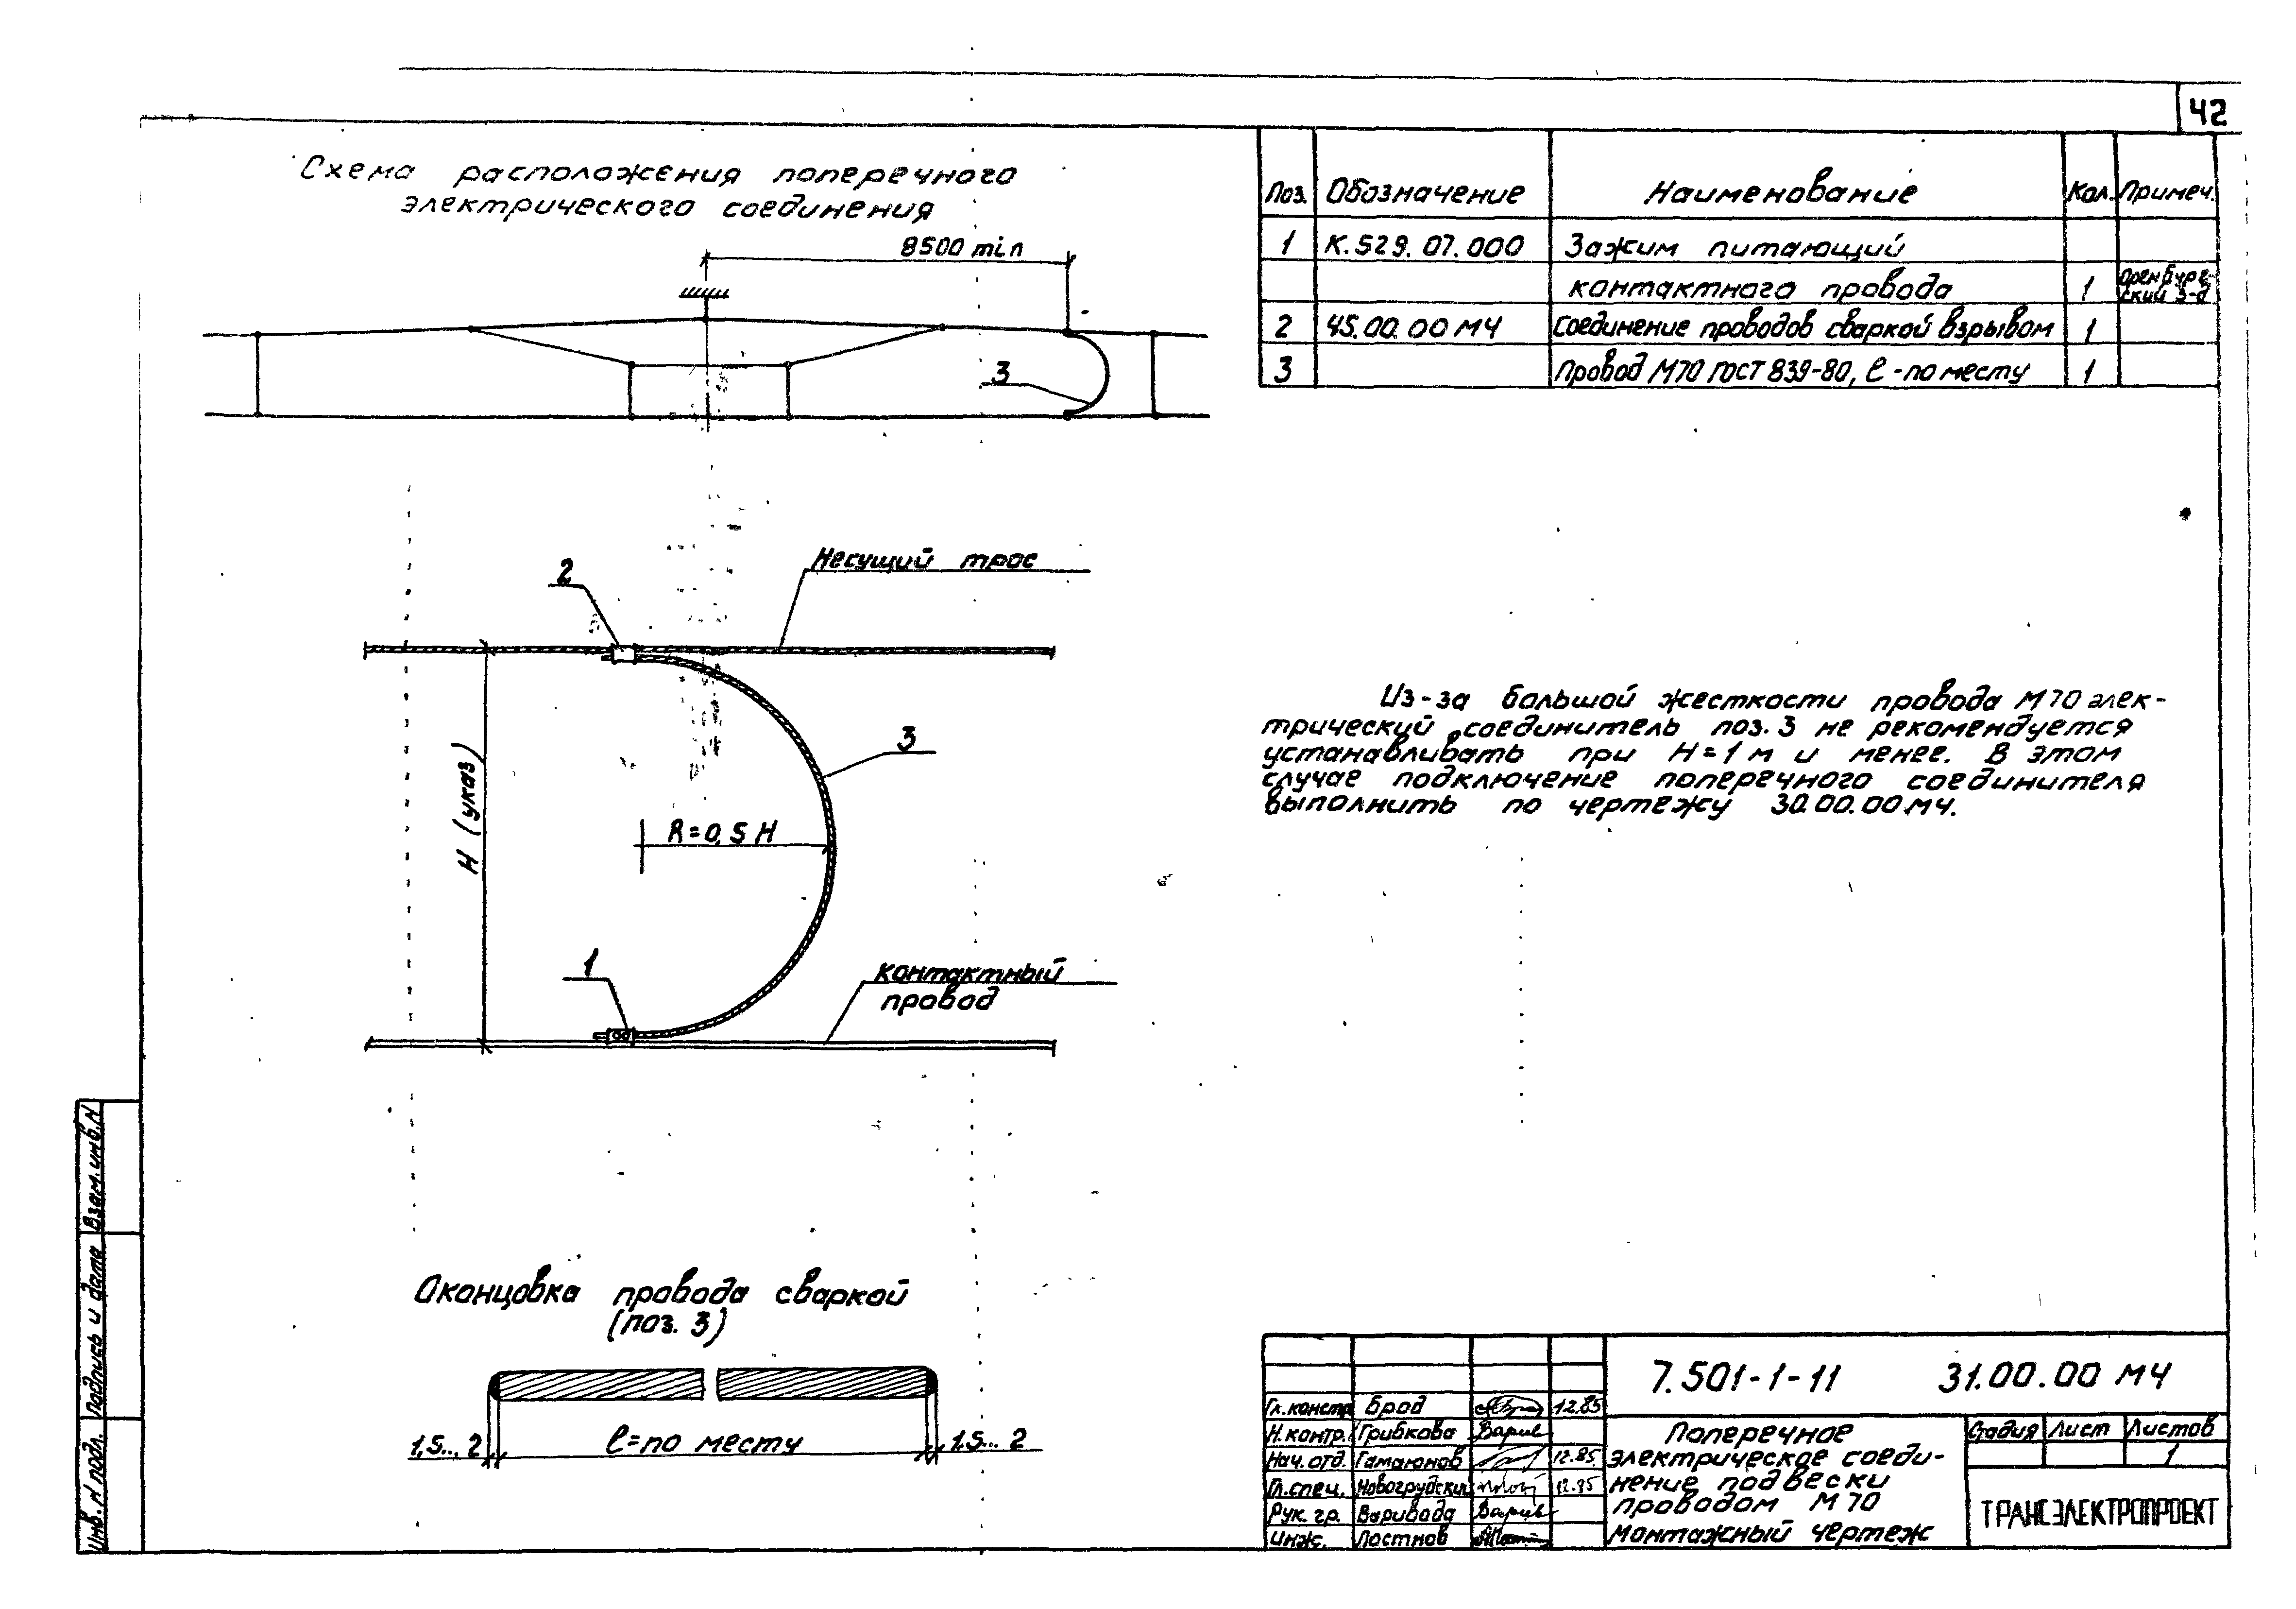 42
Схема расположения поперечного
электрического соединения
8500 min
3
Поз. Обозначение Наименование Кол. Примеч.
1 К.529.07.000 Зажим питающий
контактного провода 1 Оренбург-
ский з-д
2 45.00.00 МЧ Соединение проводов сваркой взрывом 1
3 Провод М70 ГОСТ 839-80, ℓ - по месту 1
2
Несущий трос
3
H (указ)
R=0,5 H
1
контактный
провод
Из-за большой жесткости провода М70 элек-
трический соединитель поз. 3 не рекомендуется
устанавливать при H=1 м и менее. В этом
случае подключение поперечного соединителя
выполнить по чертежу 30.00.00 МЧ.
Оконцовка провода сваркой
(поз. 3)
1,5... 2
ℓ=по месту
1,5... 2
Взам. инв. N
Подпись и дата
Инв. N подл.
7.501-1-11 31.00.00 МЧ
Гл. констр. Брод 12.85
Н. контр. Грибкова
Нач. отд. Гамаюнов 12.85
Гл. спец. Новогрудский 12.85
Рук. гр. Варивода
Инж. Постнов
Поперечное
электрическое соеди-
нение подвески
проводом М70
монтажный чертеж
Стадия Лист Листов
1
ТРАНСЭЛЕКТРОПРОЕКТ